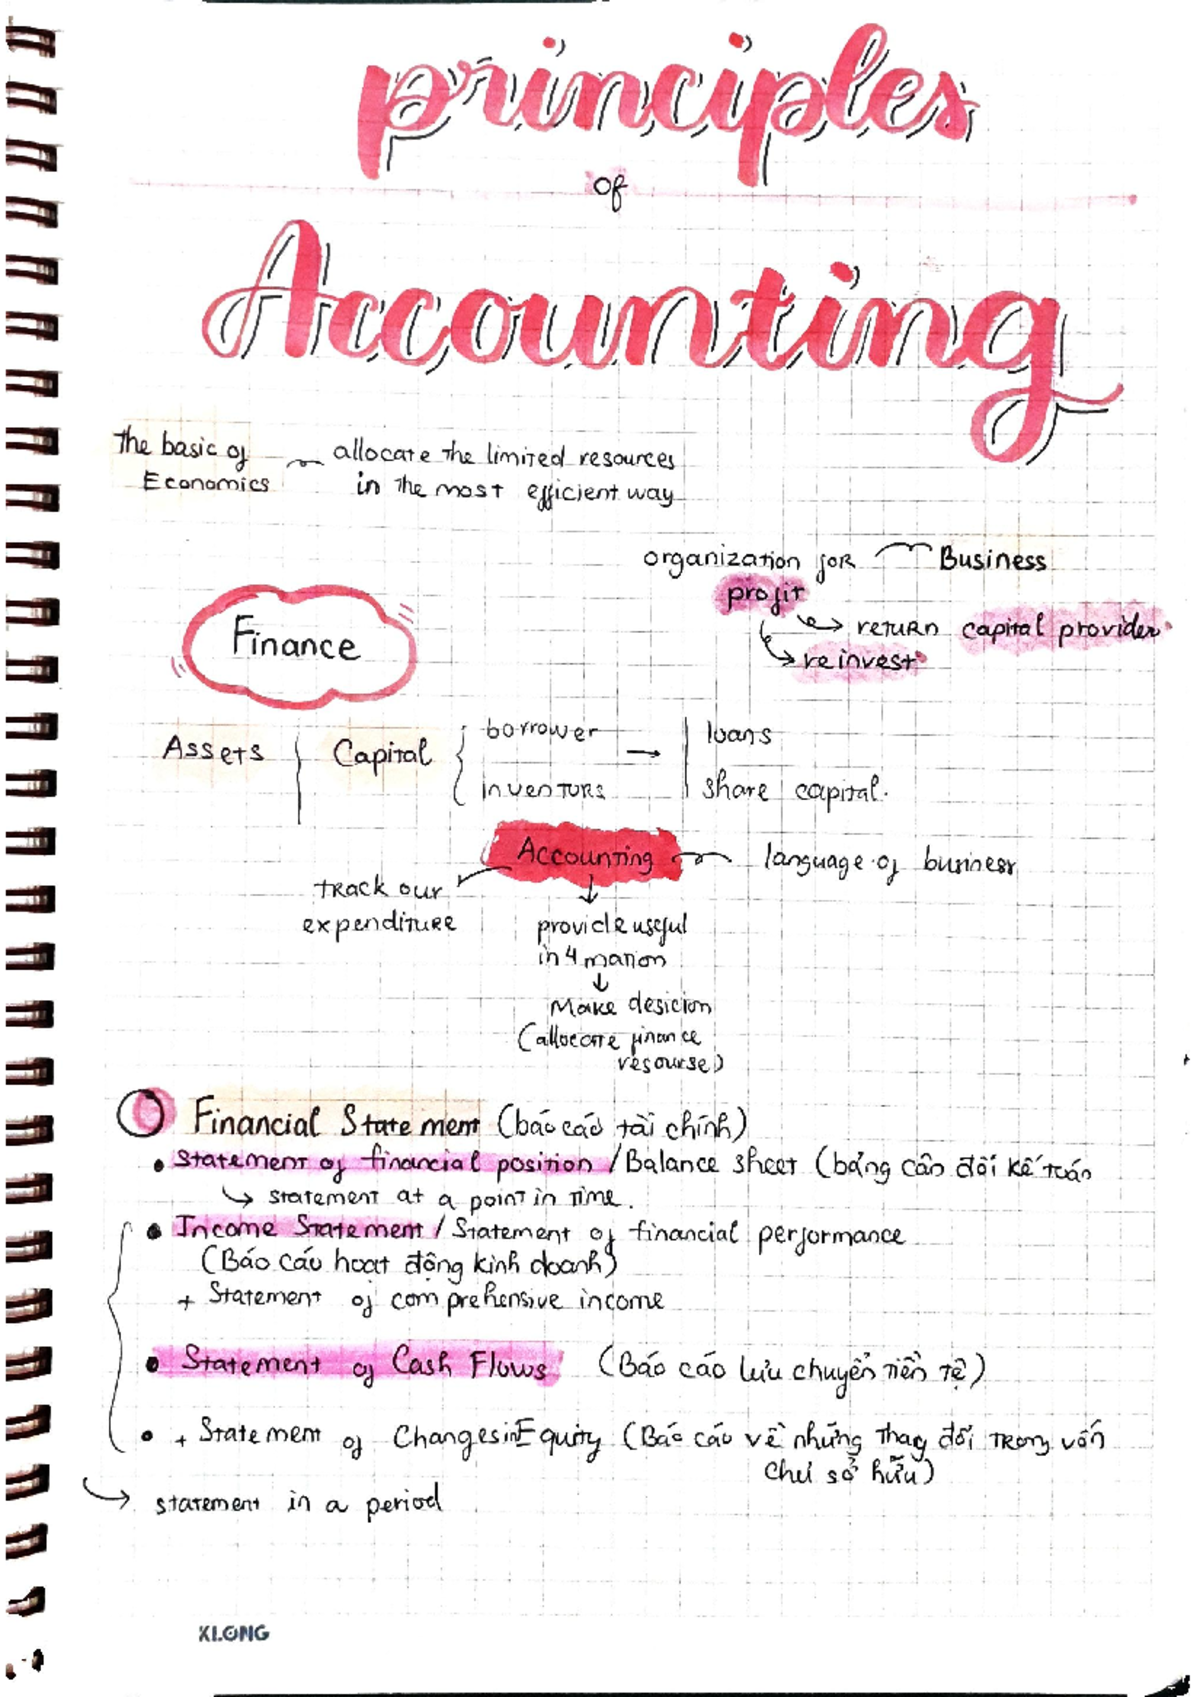 principles
of
Accounting
The basic of
Economics
allocate the limited resources
in the most efficient way
organization for
profit
Business
return capital provider
reinvest
Finance
Assets
Capital
borrower
inventors
loans
share capital.
Accounting
language of business
track our
expenditure
provide useful
in4mation
Make desicion
(allocate finance
resourse)
Financial Statement (báo cáo tài chính)
• Statement of financial position / Balance sheet (bảng cân đối kế toán
statement at a point in time.
• Income Statement / Statement of financial performance
(Báo cáo hoạt động kinh doanh)
+ Statement of comprehensive income
• Statement of Cash Flows (Báo cáo lưu chuyển tiền tệ)
• + Statement of Changes in Equity (Báo cáo về những thay đổi trong vốn
chủ sở hữu)
statement in a period
KLONG